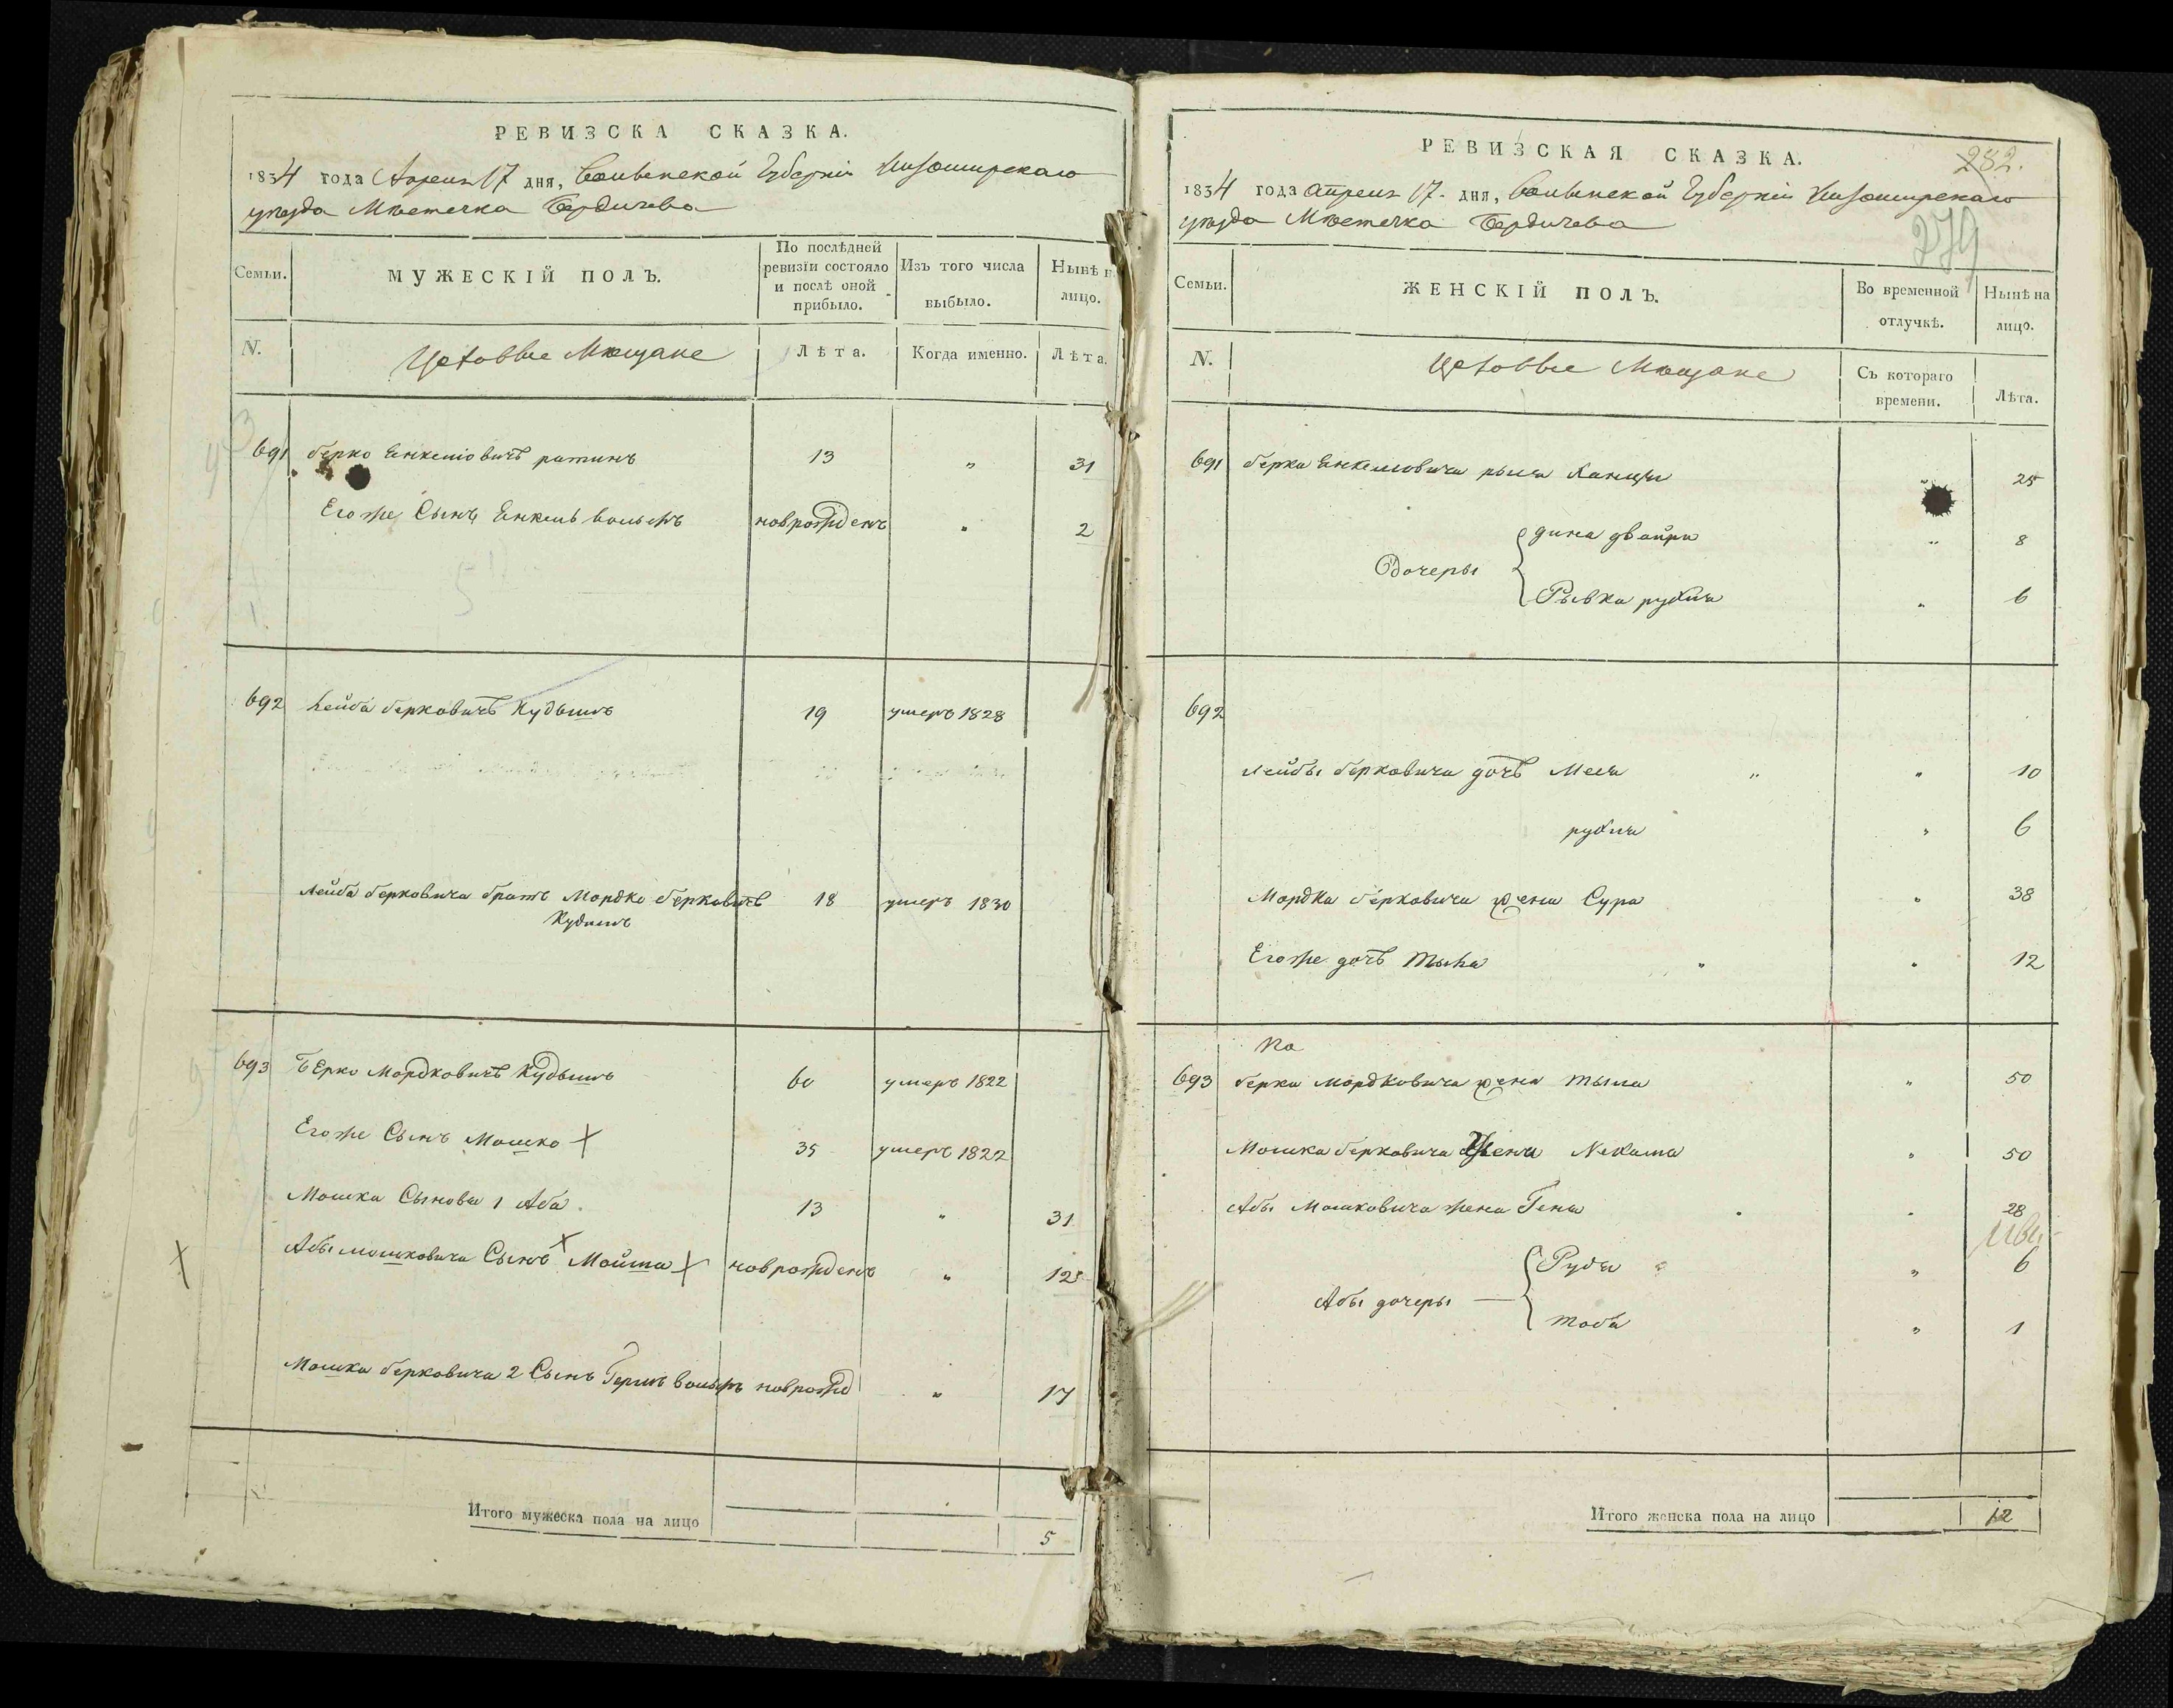 РЕВИЗСКА СКАЗКА.
1834 года Апреля 17 дня, Волынской Губерніи Житомирскаго
уѣзда Мѣстечка Бердичева
Семьи.
МУЖЕСКІЙ ПОЛЪ.
По послѣдней ревизіи состояло и послѣ оной прибыло.
Изъ того числа выбыло.
Нынѣ н лицо.
N.
Цеховые Мещане
Лѣта.
Когда именно.
Лѣта.
691 берко Енкеліовичъ 13 " 31
Егоже Сынъ Енкель вольфъ новрожденъ " 2
692 Лейба берковичъ Кудышъ 19 умеръ 1828
Лейба берковича братъ Мордко берковичъ 18 умеръ 1830
Кудышъ
693 бЕрко Мордковичъ Кудышъ 60 умеръ 1822
Егоже Сынъ Мошко 35 умеръ 1822
Мошка Сыновя 1 Аба 13 " 31
Абы мошковича Сынъ новрожденъ " 12
Мошка берковича 2 Сынъ Гершъ вольфъ новрожд " 17
Итого мужеска пола на лицо 5
РЕВИЗСКАЯ СКАЗКА.
282.
1834 года Апреля 17 дня, Волынской Губерніи Житомирскаго
уѣзда Мѣстечка Бердичева
279
Семьи.
ЖЕНСКІЙ ПОЛЪ.
Во временной отлучкѣ.
Нынѣ на лицо.
N.
Цеховые Мещане
Съ котораго времени.
Лѣта.
691 берка Енкелювича 25
дина двойра " 8
Дочеры
Рывка рухля " 6
692
Лейбы берковича дочъ " " 10
рухля " 6
Мордка берковича жена Сура " 38
Егоже дочъ " " 12
693 берка мордковича жена " 50
Мошка берковича жена Нехама " 50
Абы Мошковича жена Геня " 28
Рудя " 6
Абы дочеры
тоба " 1
Итого женска пола на лицо 12